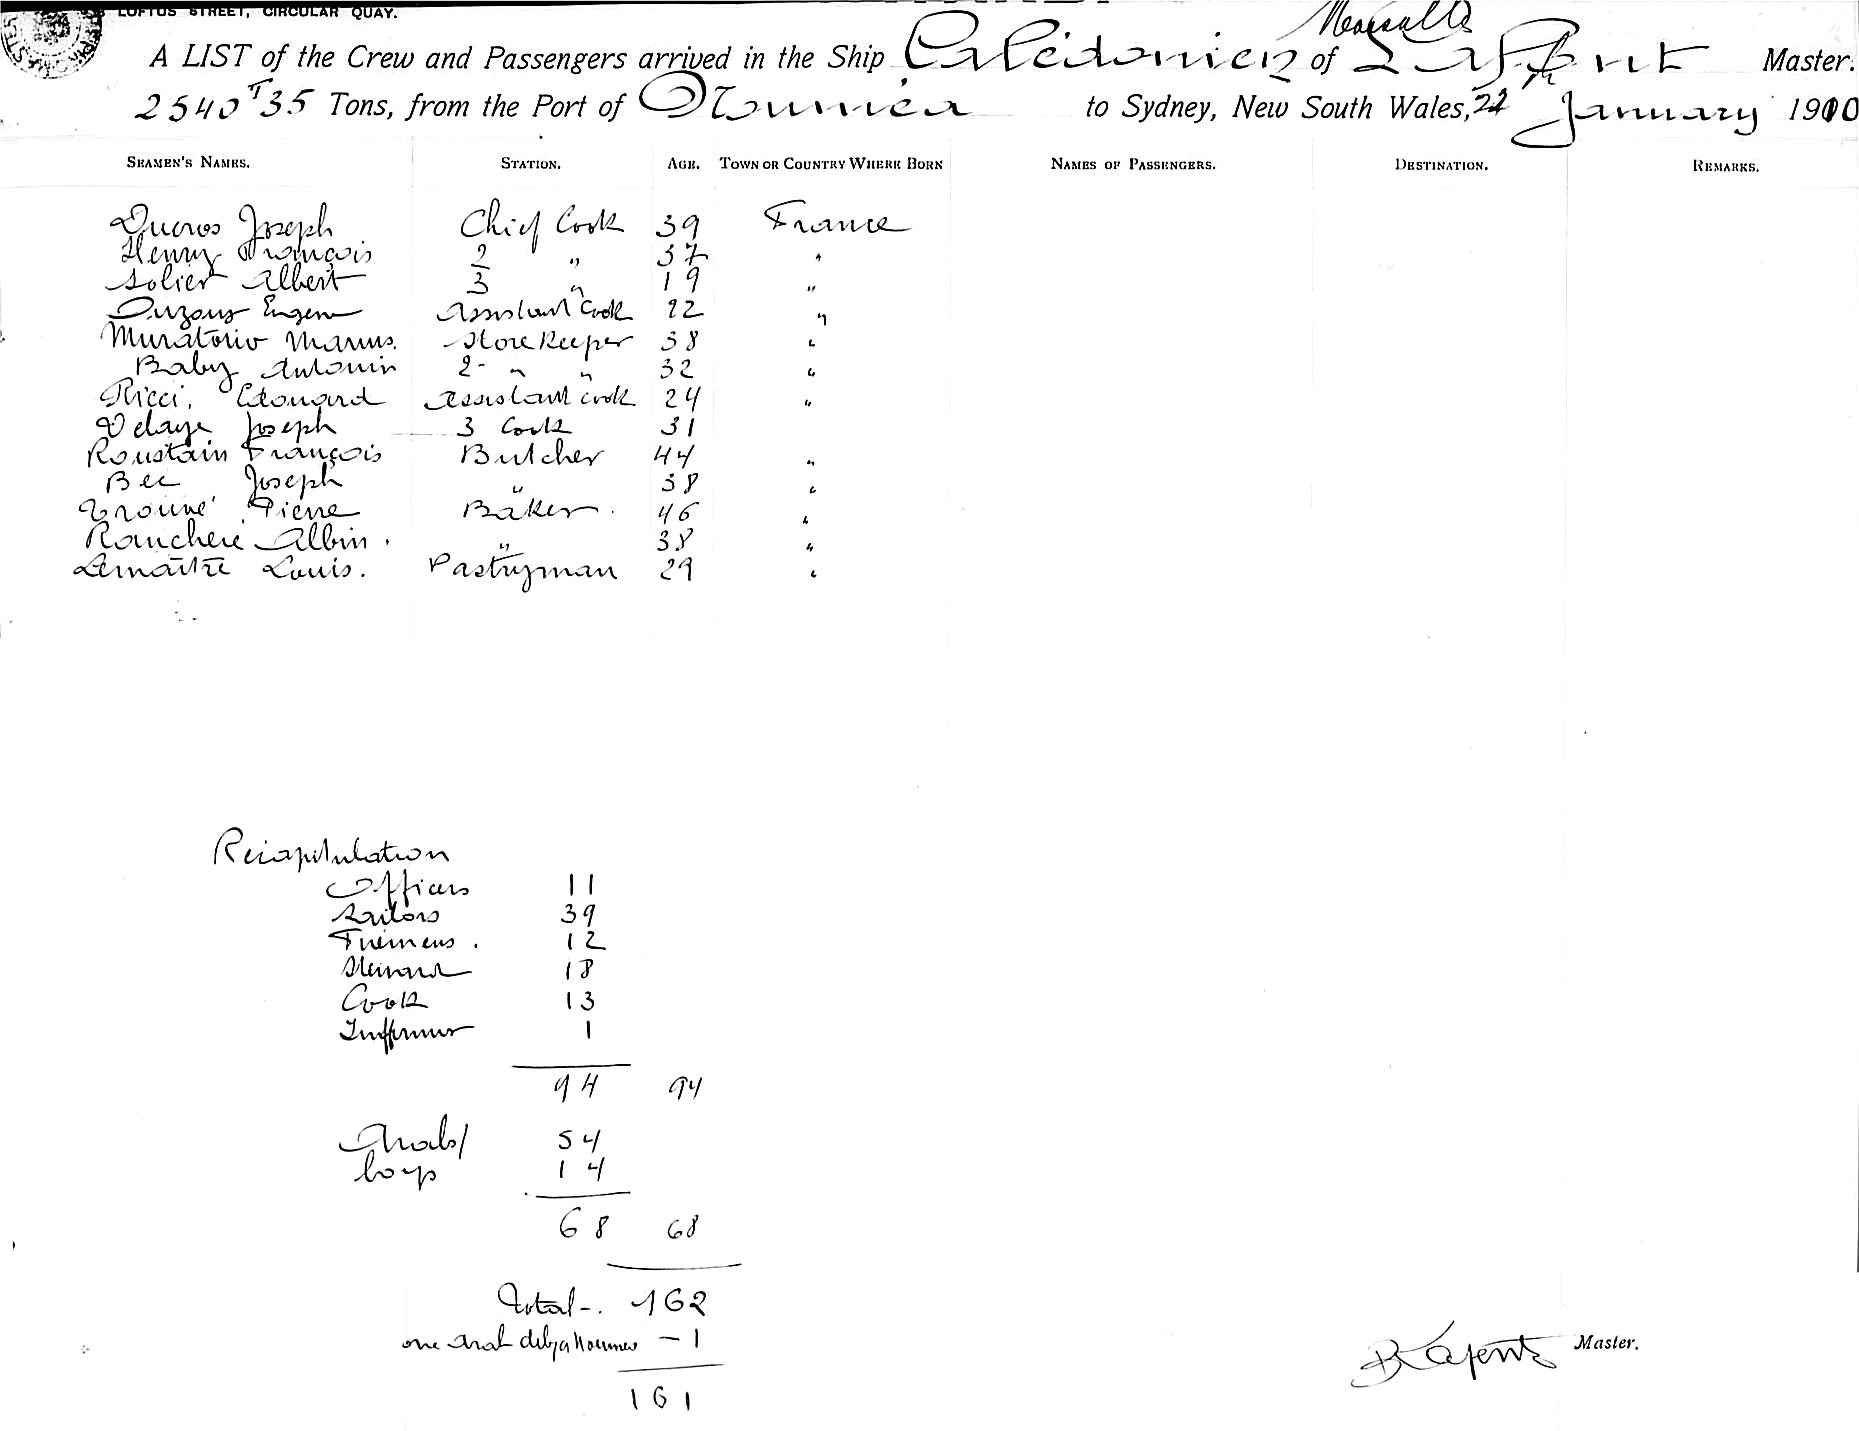 LOFTUS STREET, CIRCULAR QUAY.
Marseille
A LIST of the Crew and Passengers arrived in the Ship Calédonien of Lafont Master.
2540 T 35 Tons, from the Port of Nouméa to Sydney, New South Wales, January 1910
SEAMEN'S NAMES. STATION. AGE. TOWN OR COUNTRY WHERE BORN NAMES OF PASSENGERS. DESTINATION. REMARKS.
Ducros Joseph Chief Cook 39 France
Henry François 2 " 37 "
Solier Albert 3 " 19 "
Eugene Assistant Cook 22 "
Muratorio Marius. Store Keeper 38 "
Baby Antonin 2- " " 32 "
Ricci, Edouard Assistant cook 24 "
Velaye Joseph 3 Cook 31
Roustain François Butcher 44 "
Bec Joseph " 38 "
Trouvé Pierre Baker. 46 "
Rancheré Albin. " 38 "
Lemaître Louis. Pastryman 29 "
Recapitulation
Officers 11
Sailors 39
Firemens. 12
Steward 18
Cook 13
1
94 94
Arabs/ 54
boys 14
68 68
Total-. 162
one Arab Noumea - 1
161
Master.